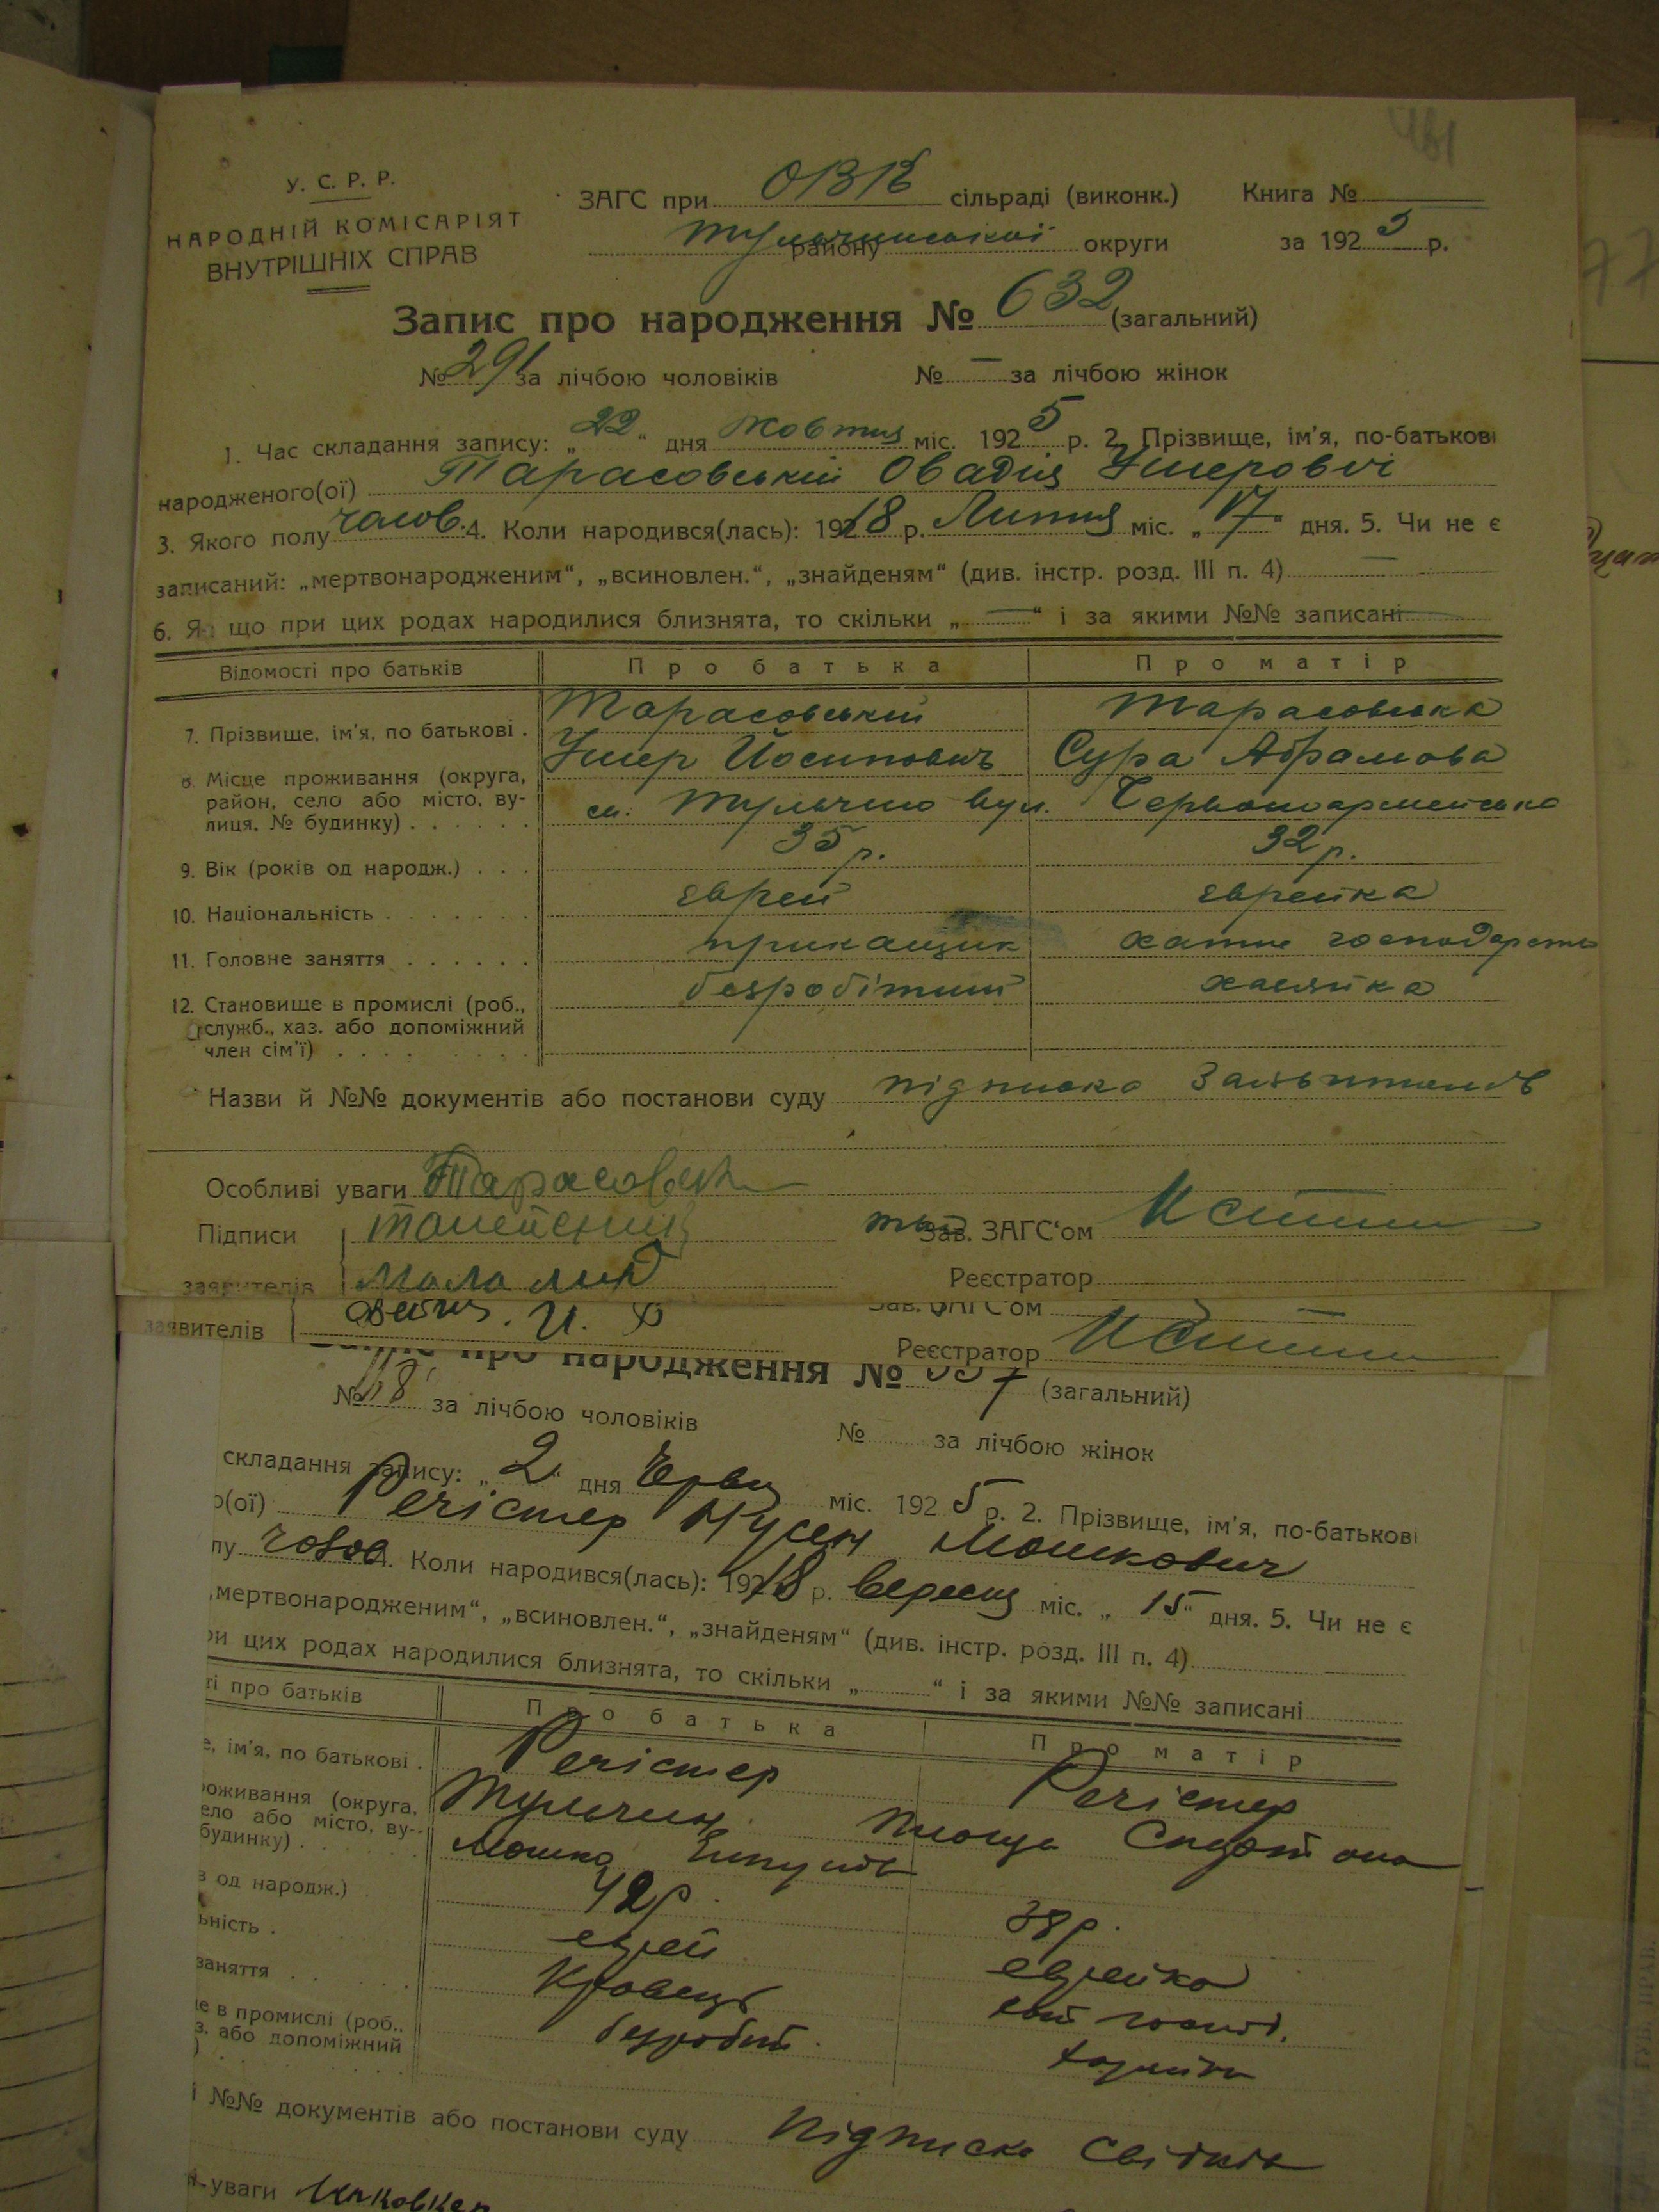 481
У. С. Р. Р.
НАРОДНІЙ КОМІСАРІЯТ
ВНУТРІШНІХ СПРАВ
ЗАГС при ОВІК сільраді (виконк.) Книга №
Тульчинської району округи за 1925 р.
Запис про народження № 632 (загальний)
№ 291 за лічбою чоловіків № — за лічбою жінок
1. Час складання запису: „22“ дня Жовтня міс. 1925 р. 2. Прізвище, ім'я, по-батькові
народженого(ої) Тарасовський Овадія Ушерович
3. Якого полу чолов. 4. Коли народився(лась): 1918 р. Липня міс. „17“ дня. 5. Чи не є
записаний: „мертвонародженим“, „всиновлен.“, „знайденям“ (див. інстр. розд. III п. 4) —
6. Я що при цих родах народилися близнята, то скільки „—“ і за якими №№ записані —
Відомості про батьків Про батька Про матір
7. Прізвище, ім'я, по батькові . Тарасовський Тарасовська
Ушер Йосипович Сура Абрамова
8. Місце проживання (округа, район, село або місто, вулиця, № будинку) . . . . . . м. Тульчин вул. Червоноармейська
9. Вік (років од народж.) . . . 35 р. 32 р.
10. Національність . . . . . . . єврей єврейка
11. Головне заняття . . . . . . прикащик хатне господарств
12. Становище в промислі (роб., служб., хаз. або допоміжний член сім'ї) . . . . безробітний хазяйка
Назви й №№ документів або постанови суду підписка
Особливі уваги
Підписи
заявителів
Зав. ЗАГС'ом
Реєстратор
заявителів
Зав. ЗАГС'ом
Реєстратор
Запис про народження № (загальний)
№ 118 за лічбою чоловіків № за лічбою жінок
складання запису: „2“ дня Червн міс. 1925 р. 2. Прізвище, ім'я, по-батькові
о(ої) Речістер Нусен Мошкович
лу чолов 4. Коли народився(лась): 1918 р. Вересня міс. „15“ дня. 5. Чи не є
„мертвонародженим“, „всиновлен.“, „знайденям“ (див. інстр. розд. III п. 4)
ри цих родах народилися близнята, то скільки „ “ і за якими №№ записані
ті про батьків Про батька Про матір
е, ім'я, по батькові . Речістер Речістер
роживання (округа, Тульчин площа
ело або місто, ву-
будинку) . Мошко
в од народж.) 42 р. 38 р.
ьність . еврей еврейка
заняття . . . Кравець хат госпо.
е в промислі (роб., безробіт. хазяйка
з. або допоміжний
)
і №№ документів або постанови суду Підписка свідків
уваги